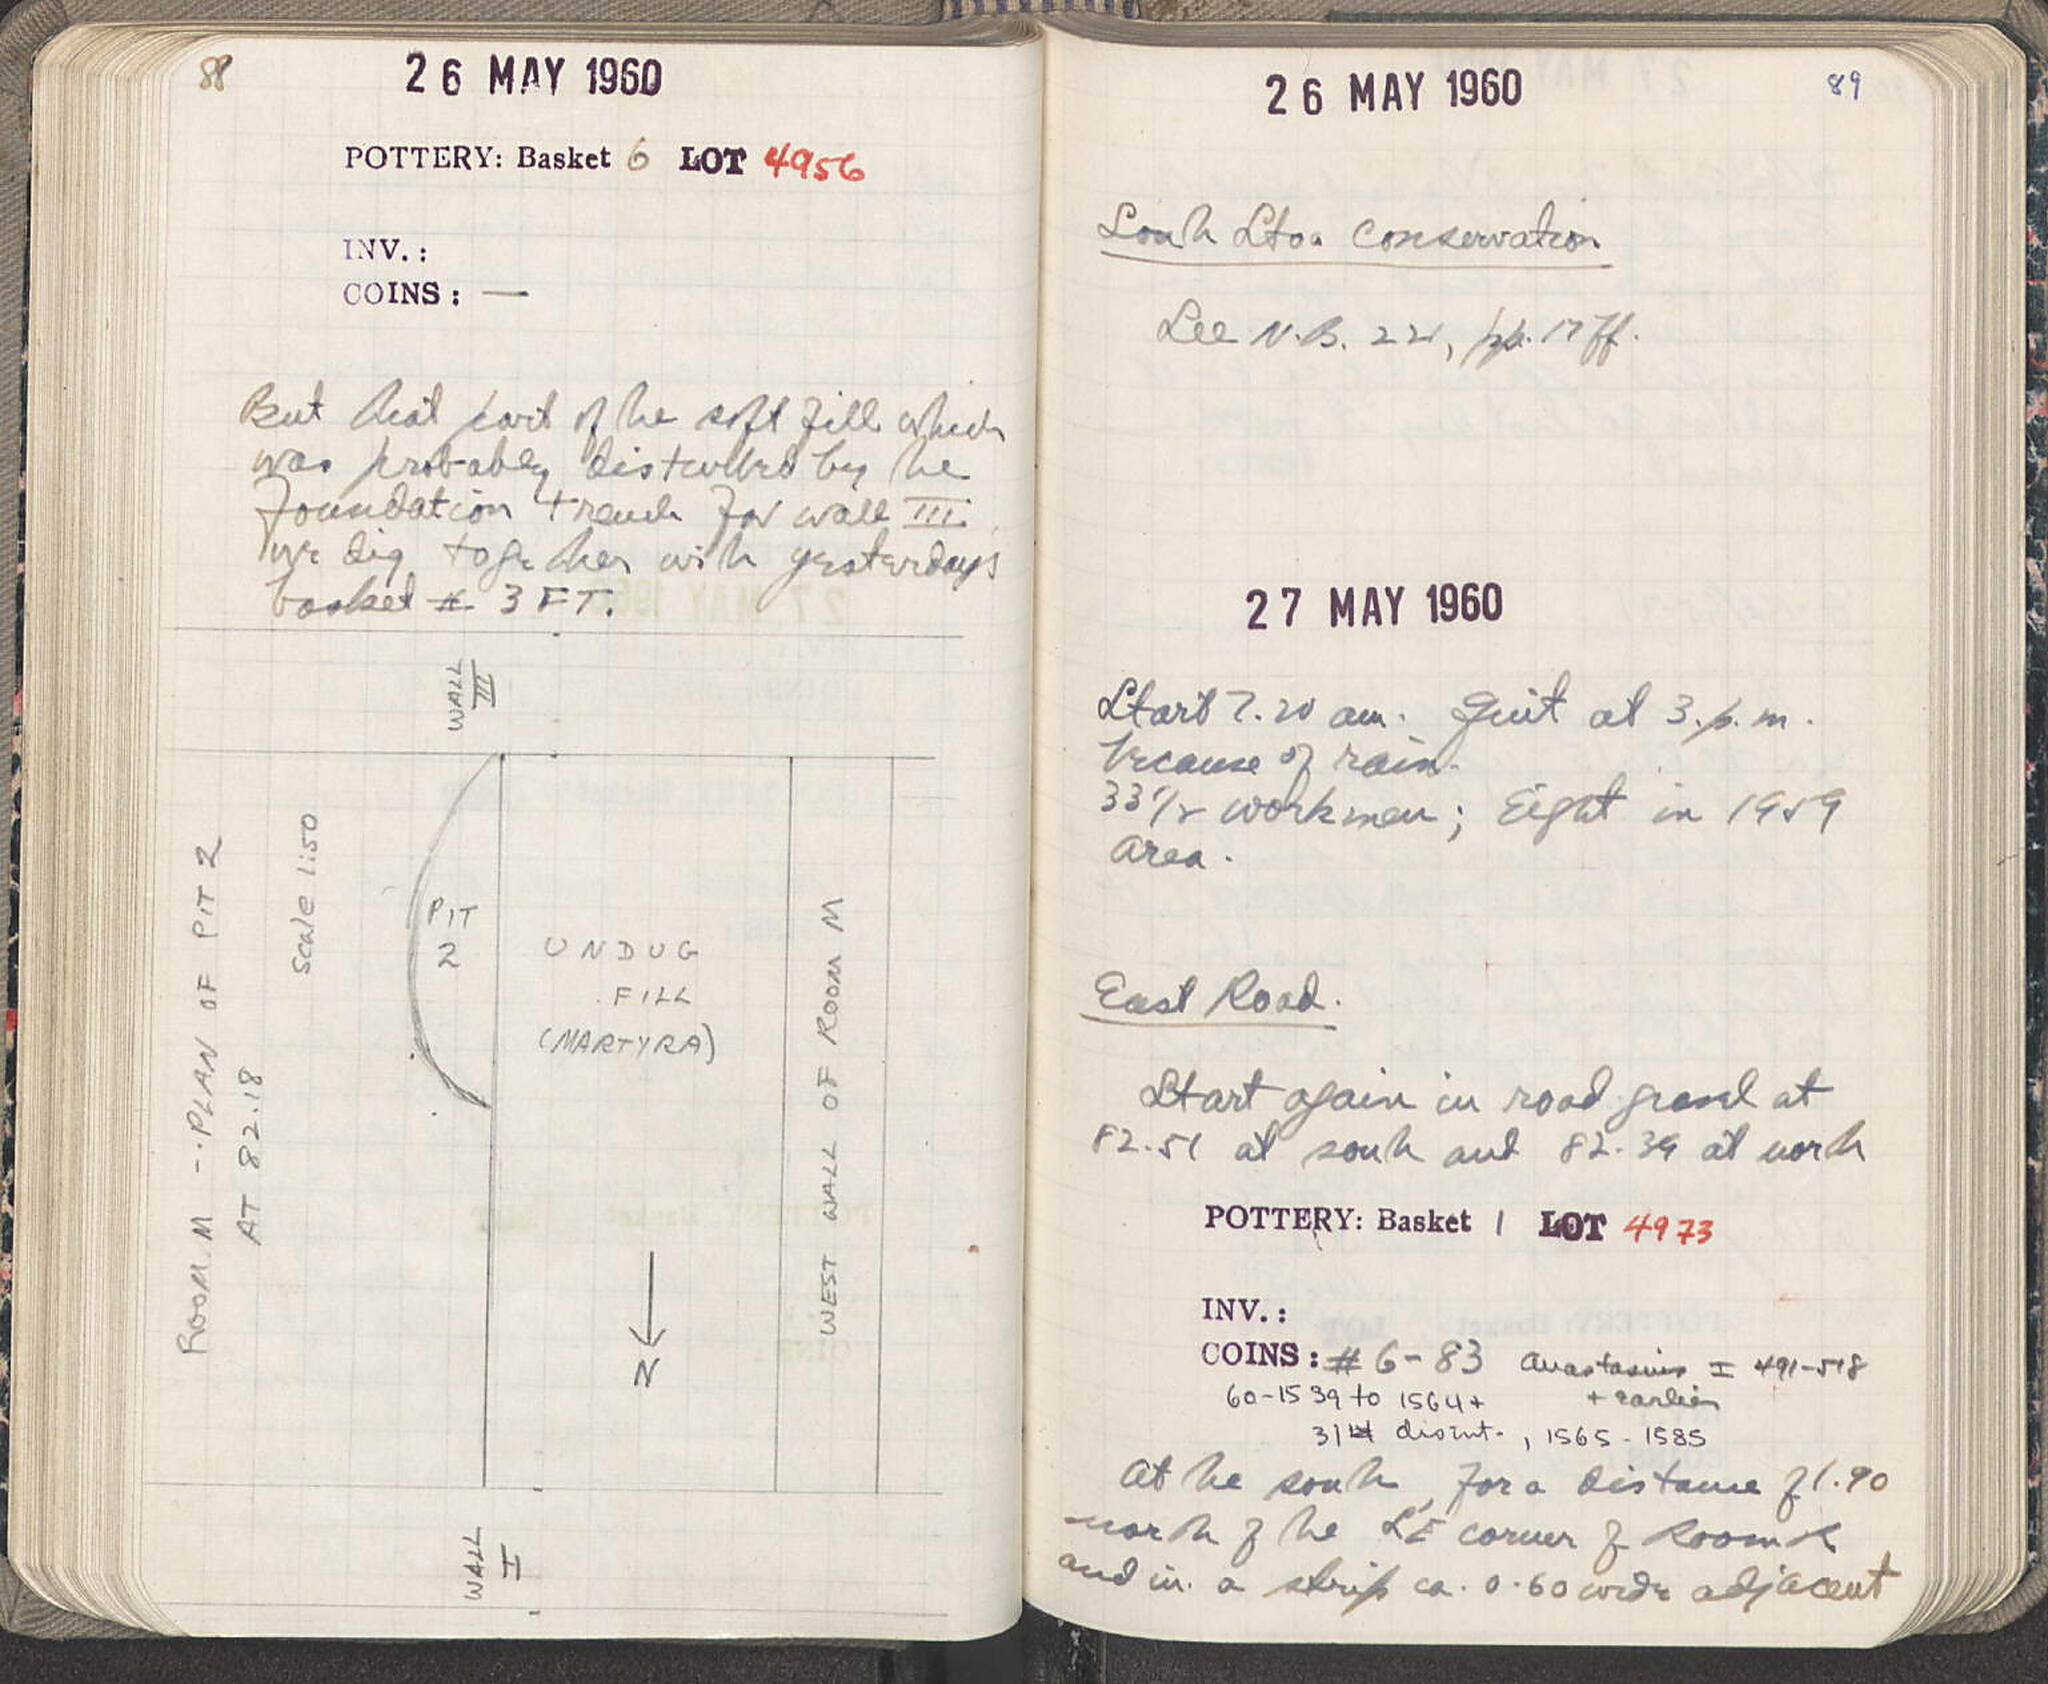 88
26 MAY 1960
POTTERY: Basket 6 LOT 4956
INV.:
COINS: —
But that part of the soft fill which
was probably disturbed by the
foundation trench for wall III
we dig together with yesterdays
basket # 3 FT.
WALL
III
ROOM M -. PLAN OF PIT 2
AT 82.18
Scale 1:50
PIT
2
UNDUG
FILL
(MARTYRA)
WEST WALL OF ROOM M
N
WALL
I
26 MAY 1960
89
South Stoa Conservation
See N.B. 22, pp. 17 ff.
27 MAY 1960
Start 7.20 am. Quit at 3.p.m.
because of rain.
33 1/2 workmen; Eight in 1959
area.
East Road.
Start again in road gravel at
82.51 at south and 82.39 at north
POTTERY: Basket 1 LOT 4973
INV.:
COINS: # 6-83 Anastasius I 491-518
60-1539 to 1564 + + earlier
31 disint., 1565-1585
At the south, for a distance of 1.90
north of the SE corner of Room
and in a strip ca. 0.60 wide adjacent